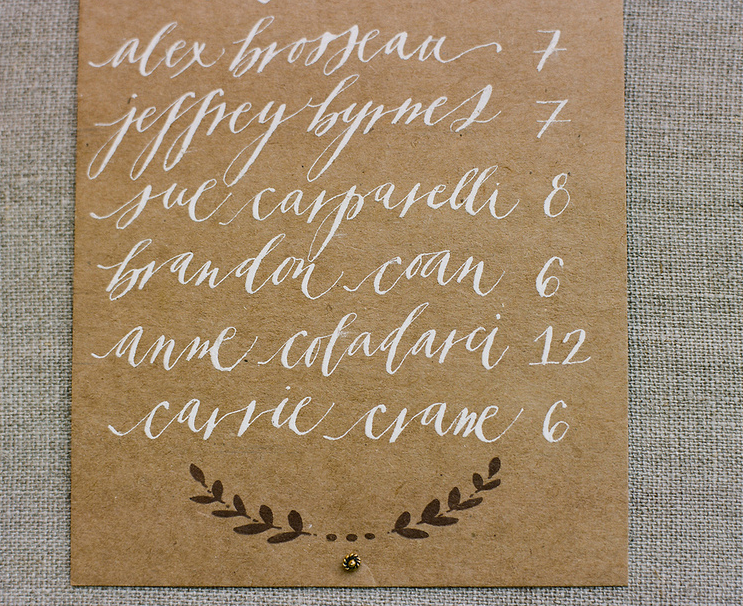 alex brosseau 7
jeffrey byrnes 7
sue carparelli 8
brandon coan 6
anne coladarci 12
carrie crane 6